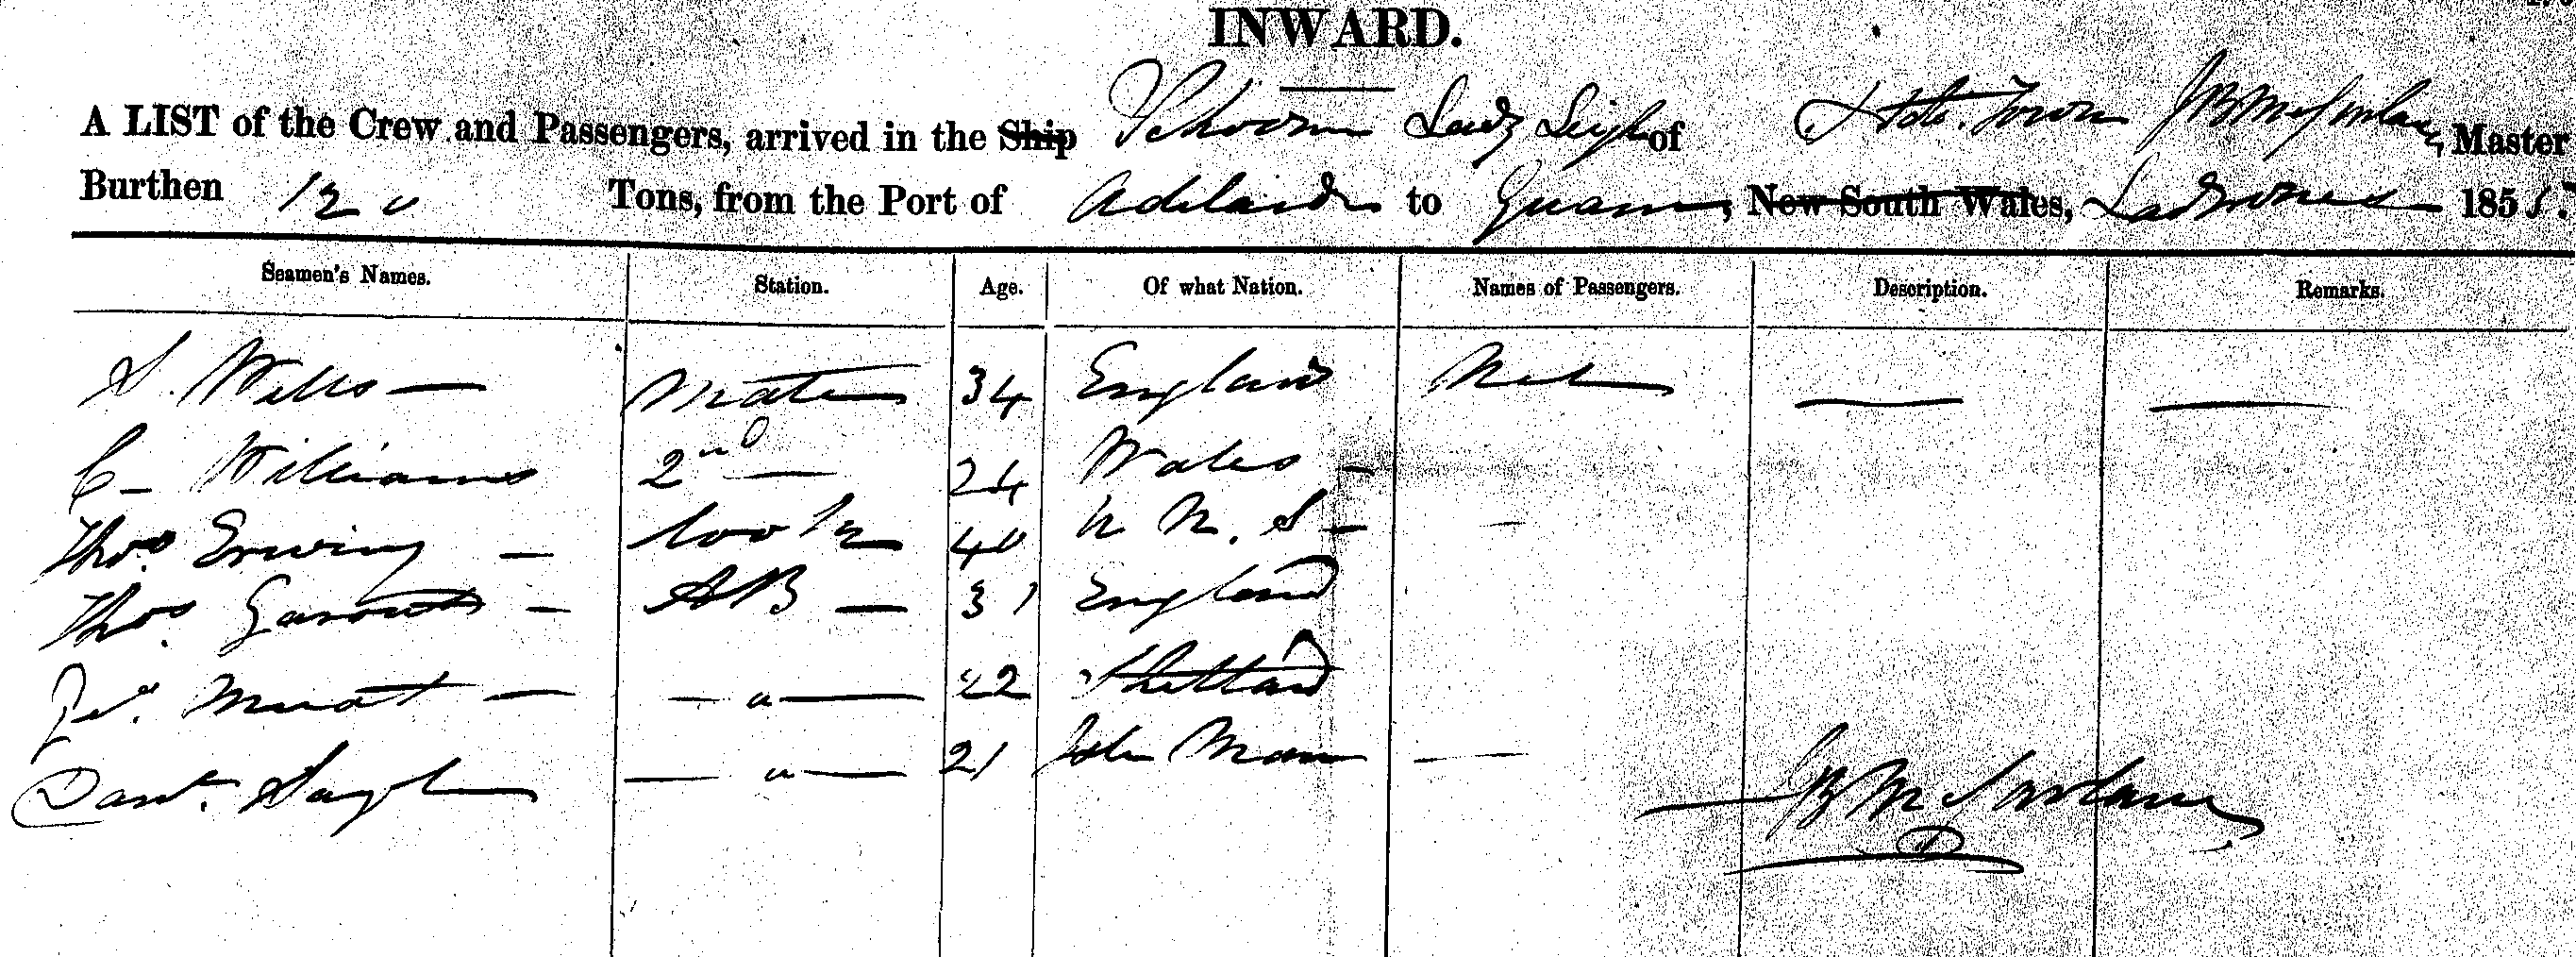 INWARD.
A LIST of the Crew and Passengers, arrived in the Ship Schooner Lady Leigh of Hob. Town J B McFarlane, Master
Burthen 120 Tons, from the Port of Adelaide to Guam, New South Wales, Ladrones 1855.
Seamen's Names. Station. Age. Of what Nation. Names of Passengers. Description. Remarks.
S. Wills — Mate 34 England —— ——
C – Williams 2nd — 24 Wales –
Thos. Erwing – Cook 40 –
Thos. – AB — 31 England
– — " — 22 Shetland
— " — 21 —
J B McFarlane